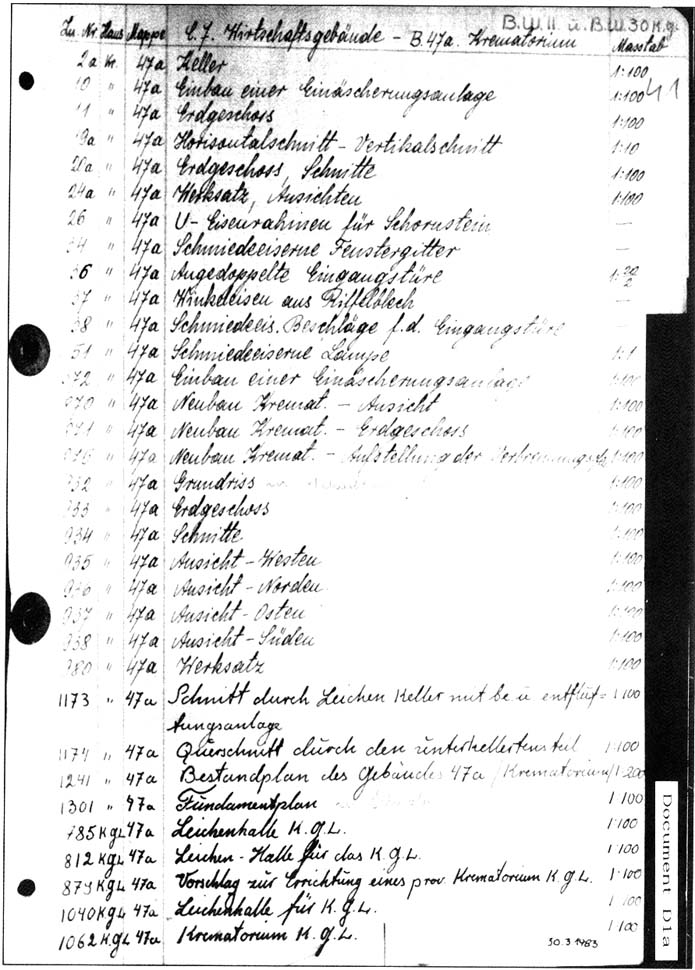 B.W. 11 u. B.W. 30 K.g.
Zn. Nr Haus Mappe C.7. Wirtschaftsgebäude – B. 47a. Krematorium Masstab
41
2a Kr. 47a Keller 1:100
10 " 47a Einbau einer Einäscherungsanlage 1:100
11 " 47a Erdgeschoss 1:100
19a " 47a Horisontalschnitt – Vertikalschnitt 1:10
20a " 47a Erdgeschoss, Schnitte 1:100
24a " 47a Werksatz, Ansichten 1:100
26 " 47a U-Eisenrahmen für Schornstein —
34 " 47a Schmiedeeiserne Fenstergitter —
36 " 47a Angedoppelte Eingangstüre
37 " 47a Winkeleisen aus Riffelblech —
38 " 47a Schmiedeeis. Beschläge f.d. Eingangstüre —
51 " 47a Schmiedeeiserne Lampe 1:1
" 47a Einbau einer Einäscherungsanlage 1:100
" 47a Neubau Kremat. – Ansicht 1:100
" 47a Neubau Kremat. – Erdgeschoss 1:100
" 47a Neubau Kremat. – Aufstellung der 1:100
932 " 47a Grundriss 1:100
933 " 47a Erdgeschoss 1:100
934 " 47a Schnitte 1:100
935 " 47a Ansicht – Westen 1:100
936 " 47a Ansicht – Norden 1:100
937 " 47a Ansicht – Osten 1:100
938 " 47a Ansicht – Süden 1:100
980 " 47a Werksatz 1:100
1173 " 47a Schnitt durch Leichen Keller mit be u entlüf= 1:100
tungsanlage
1174 " 47a Querschnitt durch den unterkellerten teil 1:100
1241 " 47a Bestandplan des Gebäudes 47a (Krematorium) 1:200
1301 " 47a Fundamentplan 1:100
785 KgL 47a Leichenhalle K.g.L. 1:100
812 KgL 47a Leichen-Halle für das K.g.L. 1:100
KgL 47a Vorschlag zur Errichtung eines prov. Krematorium K.g.L. 1:100
1040 KgL 47a Leichenhalle für K.g.L. 1:100
1062 KgL 47a Krematorium K.g.L. 1:100
30.3 1983
Document D1a